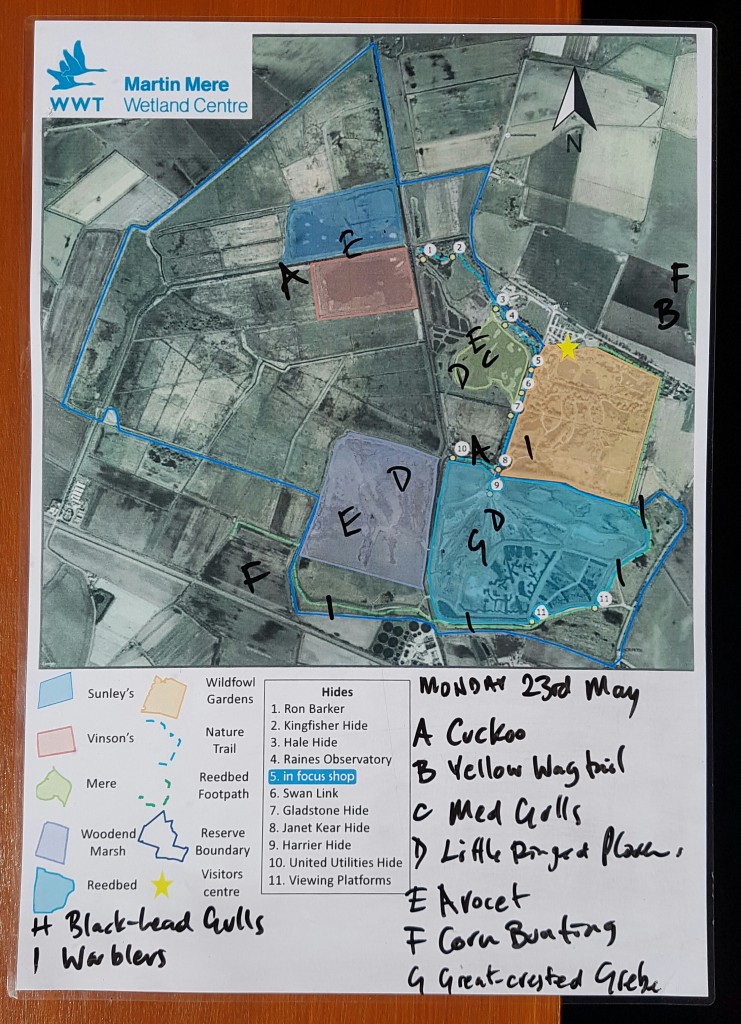 WWT
Martin Mere
Wetland Centre
N
E
A
F
B
1
2
3
4
E
C
D
5
6
7
10
A
8
I
9
D
E
D
G
F
I
I
I
I
11
11
Sunley's
Wildfowl
Gardens
Vinson's
Nature
Trail
Mere
Reedbed
Footpath
Woodend
Marsh
Reserve
Boundary
Reedbed
Visitors
centre
Hides
1. Ron Barker
2. Kingfisher Hide
3. Hale Hide
4. Raines Observatory
5. in focus shop
6. Swan Link
7. Gladstone Hide
8. Janet Kear Hide
9. Harrier Hide
10. United Utilities Hide
11. Viewing Platforms
MONDAY 23rd May
A Cuckoo
B Yellow Wagtail
C Med Gulls
D Little Ringed Plover,
E Avocet
F Corn Bunting
G Great-crested Grebe
H Black-head Gulls
I Warblers